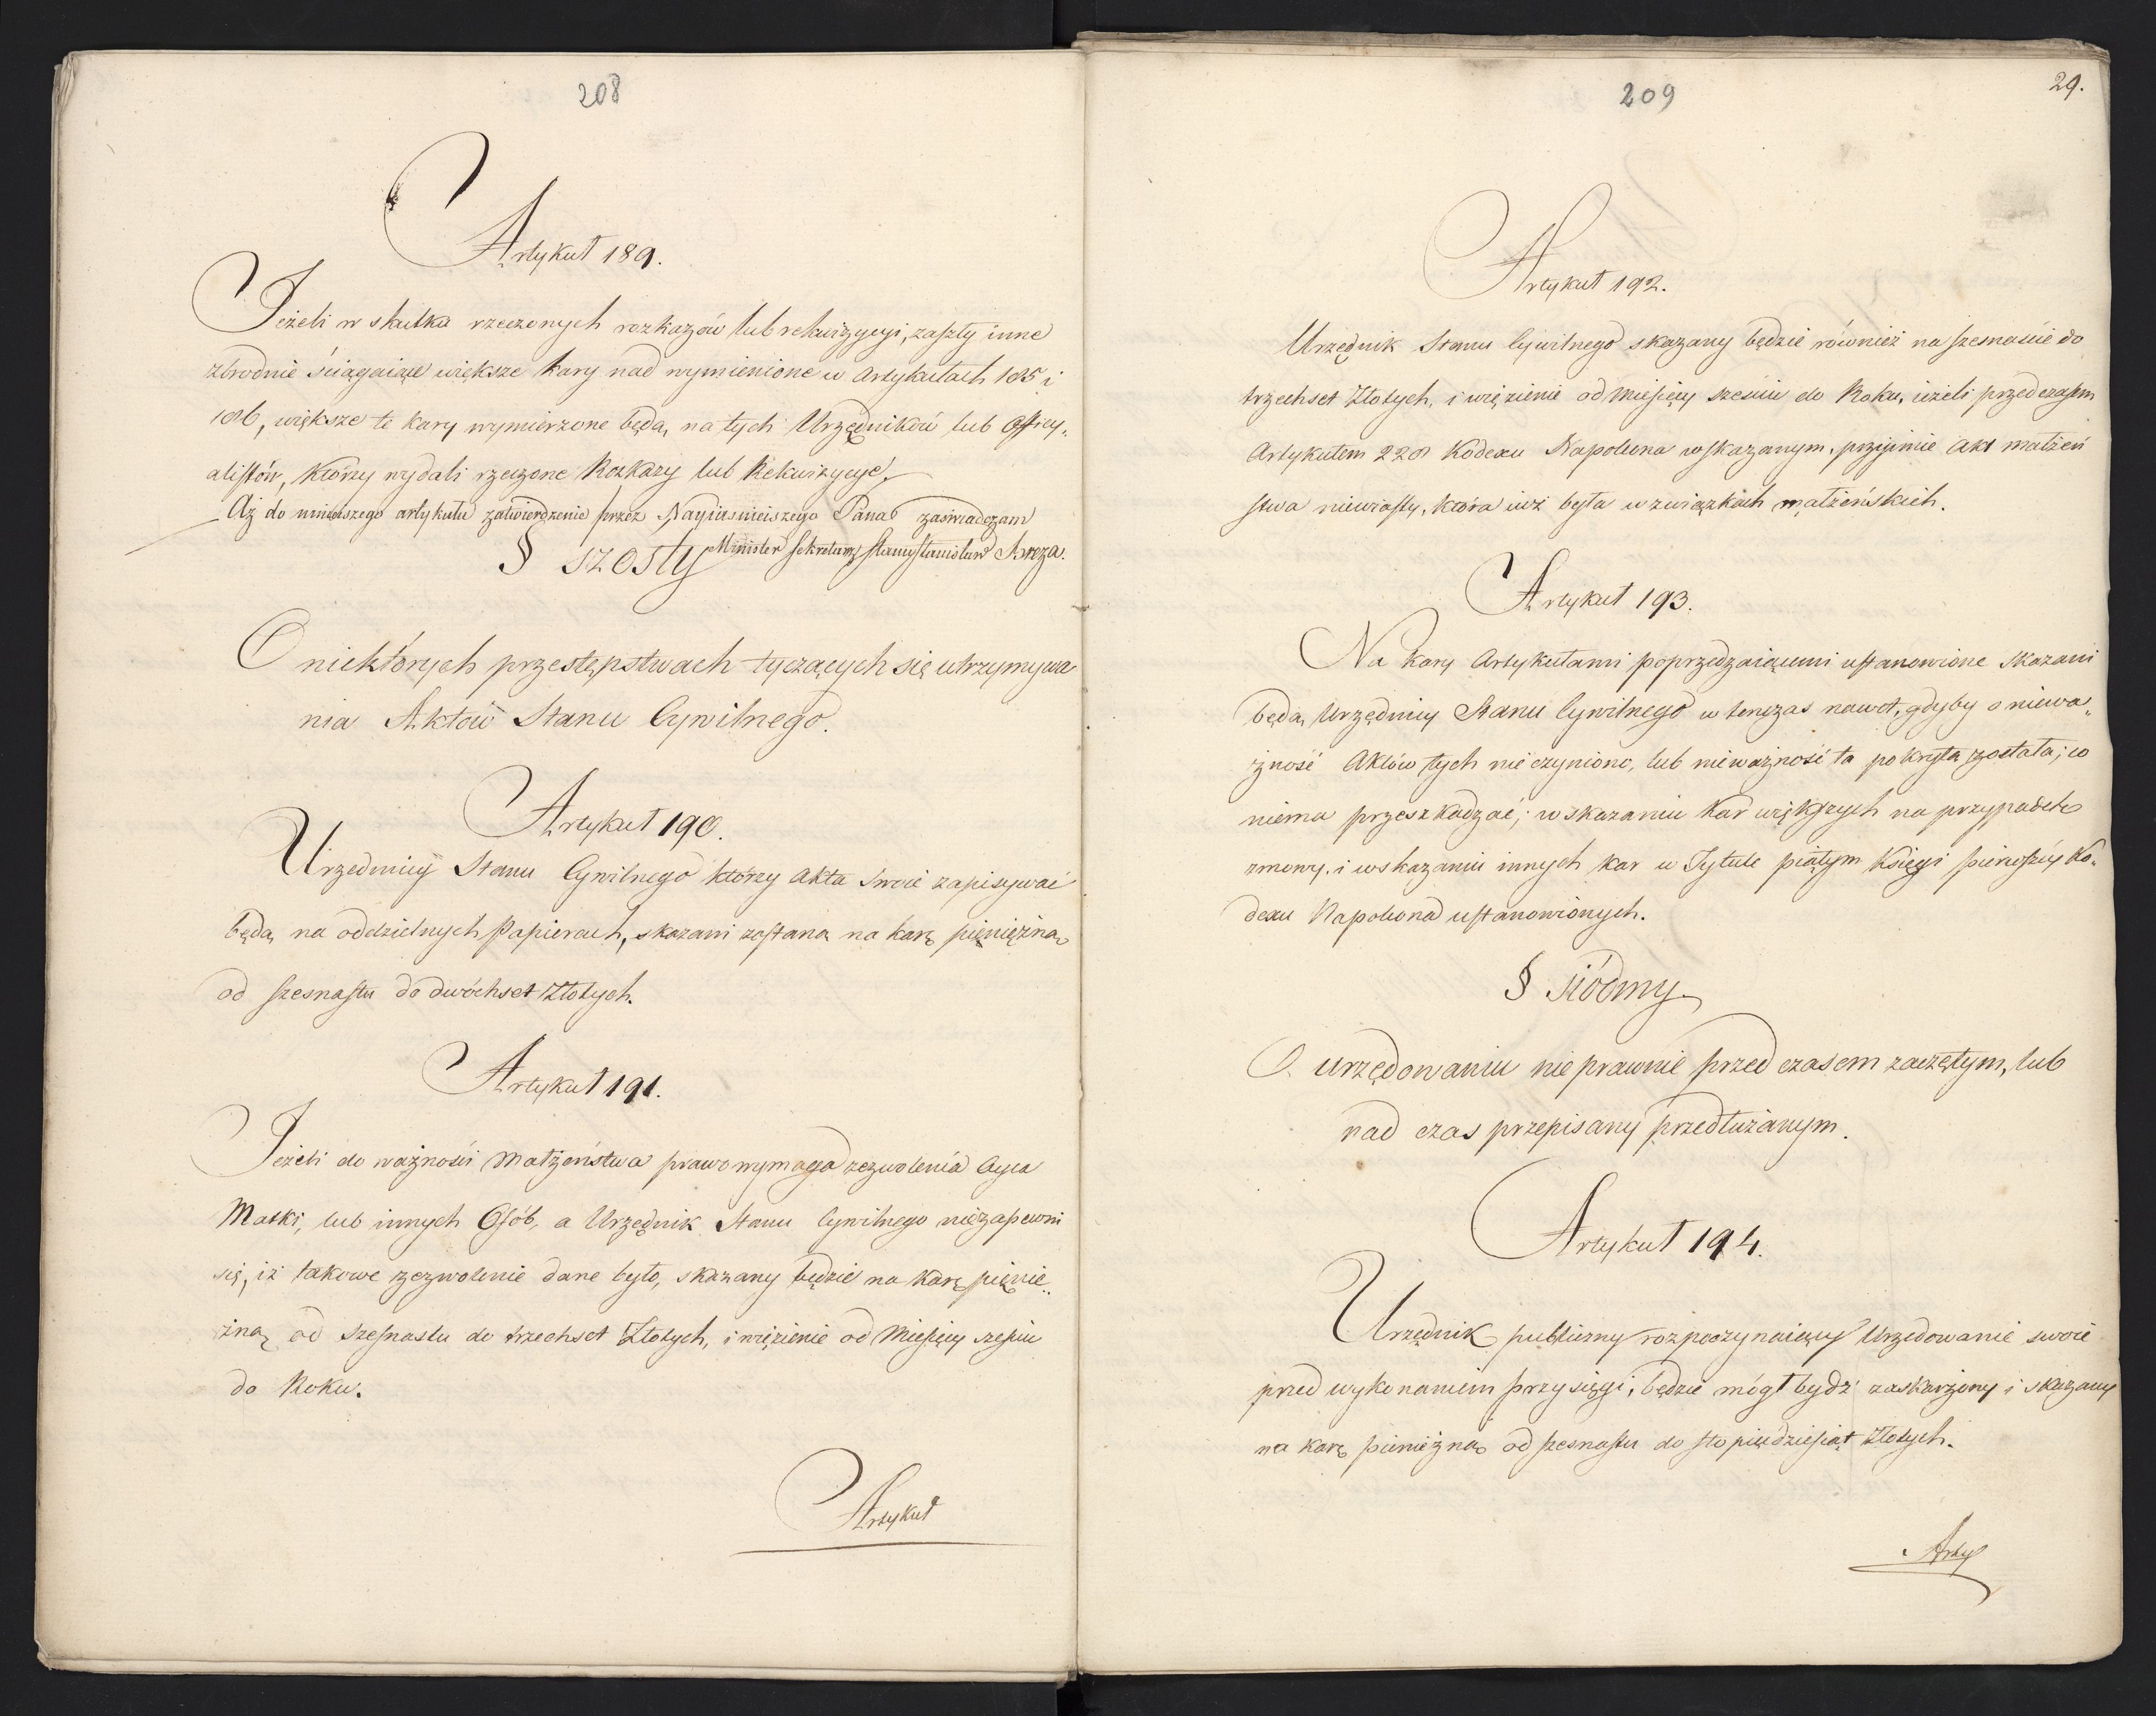 208
Artykuł 189.
Jeżeli w skutku rzeczonych rozkazów lub rekwizycyi, zaszły inne
zbrodnie ściągaiące większe kary nad wymienione w Artykułach 185 i
186, większe te kary wymierzone będą, na tych Urzędników lub Officy„
alistów, którzy wydali rzeczone Rozkazy lub Rekwizycye,
Aż do ninieyszego artykułu zatwierdzenie przez Nayiaśnieiszego Pana zaświadczam
Minister Sekretarz Stanu Stanisław Breza.
§ szósty
O niektórych przestępstwach tyczących się utrzymywa
nia Aktów Stanu Cywilnego.
Artykuł 190.
Urzędnicy Stanu Cywilnego którzy Akta swoie zapisywać
będą na oddzielnych Papierach, skazani zostaną na karę pieniężną
od szesnastu do dwóchset Złotych.
Artykuł 191.
Jeżeli do ważności Małżeństwa prawo wymaga zezwolenia Oyca
Matki, lub innych Osób, a Urzędnik Stanu Cywilnego niezapewni
się, iż takowe zezwolenie dane było, skazany będzie na karę pienię„
żną od szesnastu do trzechset Złotych, i więzienie od Miesięcy sześciu
do Roku.
Artykuł
209
29.
Artykuł 192.
Urzędnik Stanu Cywilnego skazany będzie również na szesnaście do
trzechset Złotych, i więzienie od Miesięcy sześciu do Roku, ieżeli przed czasem
Artykułem 228 Kodexu Napoleona wskazanym, przyimie Akt małżeń
stwa niewiasty, która iuż była w związkach małżeńskich.
Artykuł 193.
Na kary Artykułami poprzedzaiącemi ustanowione skazani
będą Urzędnicy Stanu Cywilnego w tenczas nawet, gdyby o niewa„
żność Aktów tych nie czyniono, lub nieważność ta pokryta została; co
niema przeszkadzać; w skazaniu kar większych na przypadek
zmowy, i wskazaniu innych kar w Tytule piątym Księgi pierwszéy Ko„
dexu Napoleona ustanowionych.
§ siódmy
O urzędowaniu nieprawnie przed czasem zaczętym, lub
nad czas przepisany przedłużanym.
Artykuł 194.
Urzędnik publiczny rozpoczynaiący Urzędowanie swoie
przed wykonaniem przysięgi, będzie mógł bydź zaskarżony i skazany
na karę pieniężną od szesnastu do sto pięćdziesiąt Złotych.
Arty